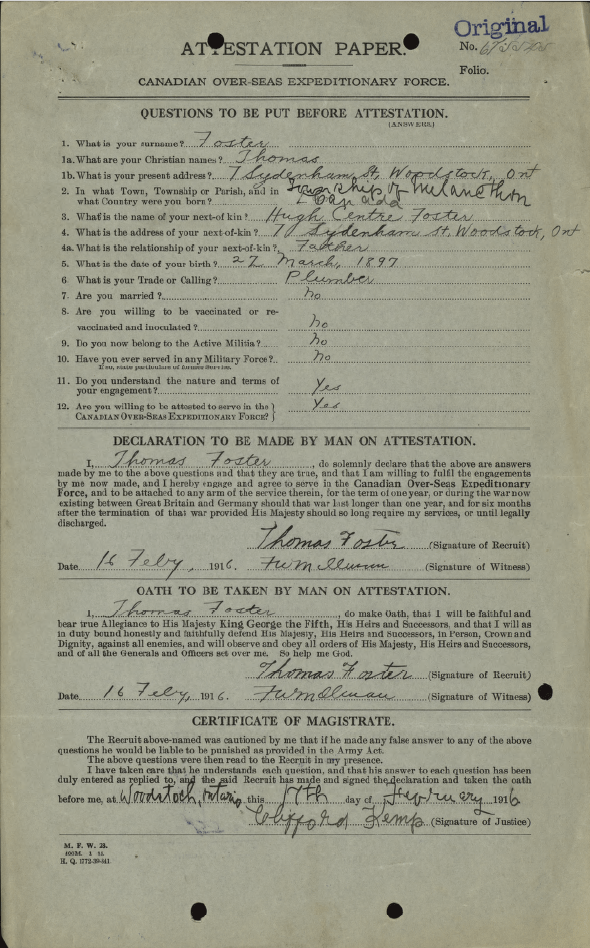 Original
ATTESTATION PAPER.
No.
Folio.
CANADIAN OVER-SEAS EXPEDITIONARY FORCE.
QUESTIONS TO BE PUT BEFORE ATTESTATION.
(ANSWERS.)
1. What is your surname? Foster
1a. What are your Christian names? Thomas
1b. What is your present address? 7 Sydenham St, Woodstock, Ont
2. In what Town, Township or Parish, and in Township of Melancthon
what Country were you born? Canada
3. What is the name of your next-of kin? Hugh Centre Foster
4. What is the address of your next-of-kin? 7 Sydenham St. Woodstock, Ont
4a. What is the relationship of your next-of-kin? Father
5. What is the date of your birth? 27 March, 1897
6. What is your Trade or Calling? Plumber
7. Are you married? No
8. Are you willing to be vaccinated or re-
vaccinated and inoculated? No
9. Do you now belong to the Active Militia? No
10. Have you ever served in any Military Force? No
If so, state particulars of former Service.
11. Do you understand the nature and terms of
your engagement? Yes
12. Are you willing to be attested to serve in the Yes
CANADIAN OVER-SEAS EXPEDITIONARY FORCE?
DECLARATION TO BE MADE BY MAN ON ATTESTATION.
I, Thomas Foster, do solemnly declare that the above are answers
made by me to the above questions and that they are true, and that I am willing to fulfil the engagements
by me now made, and I hereby engage and agree to serve in the Canadian Over-Seas Expeditionary
Force, and to be attached to any arm of the service therein, for the term of one year, or during the war now
existing between Great Britain and Germany should that war last longer than one year, and for six months
after the termination of that war provided His Majesty should so long require my services, or until legally
discharged.
Thomas Foster (Signature of Recruit)
Date 16 Feby, 1916. (Signature of Witness)
OATH TO BE TAKEN BY MAN ON ATTESTATION.
I, Thomas Foster, do make Oath, that I will be faithful and
bear true Allegiance to His Majesty King George the Fifth, His Heirs and Successors, and that I will as
in duty bound honestly and faithfully defend His Majesty, His Heirs and Successors, in Person, Crown and
Dignity, against all enemies, and will observe and obey all orders of His Majesty, His Heirs and Successors,
and of all the Generals and Officers set over me. So help me God.
Thomas Foster (Signature of Recruit)
Date 16 Feby, 1916. (Signature of Witness)
CERTIFICATE OF MAGISTRATE.
The Recruit above-named was cautioned by me that if he made any false answer to any of the above
questions he would be liable to be punished as provided in the Army Act.
The above questions were then read to the Recruit in my presence.
I have taken care that he understands each question, and that his answer to each question has been
duly entered as replied to, and the said Recruit has made and signed the declaration and taken the oath
before me, at Woodstock, Ontario this 17th day of February 1916
Clifford Kemp (Signature of Justice)
M. F. W. 23.
H. Q. 1772-39-841